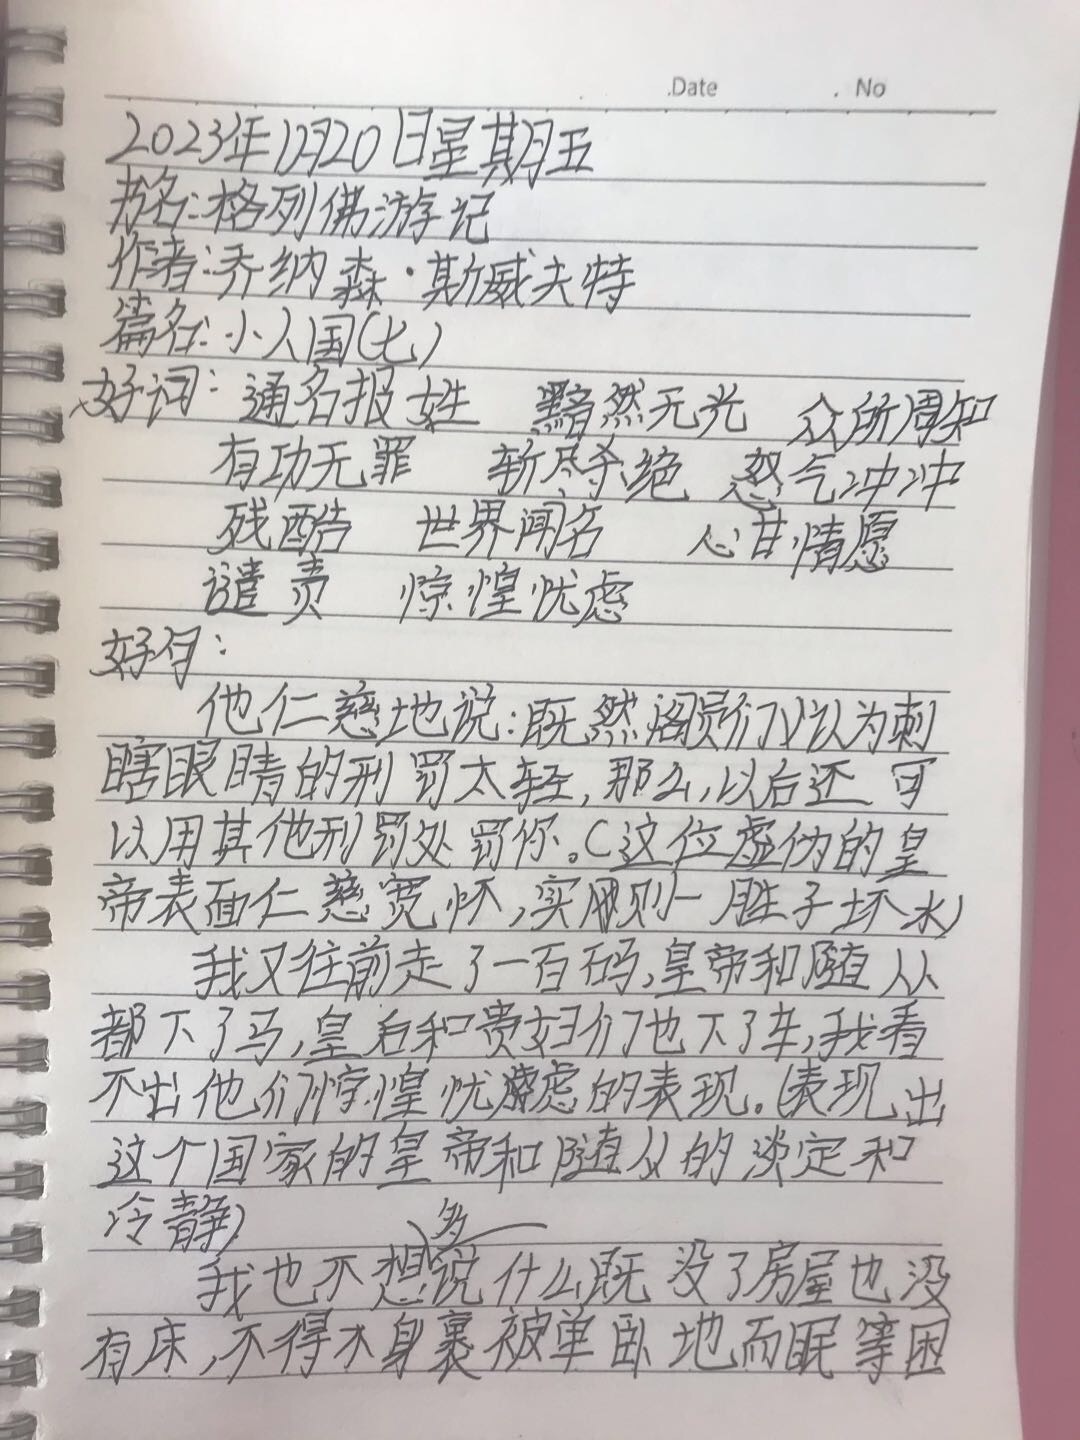 .Date . No
2023年1月20日星期五
书名:格列佛游记
作者:乔纳森·斯威夫特
篇名:小人国(七)
好词:通名报姓 黯然无光 众所周知
有功无罪 斩尽杀绝 怒气冲冲
残酷 世界闻名 心甘情愿
谴责 惊惶忧虑
好句:
他仁慈地说:既然阁员们认以为刺
瞎眼睛的刑罚太轻,那么,以后还可
以用其他刑罚处罚你。(这位虚伪的皇
帝表面仁慈宽怀,实则一肚子坏水)
我又往前走了一百码,皇帝和随从
都下了马,皇后和贵妇们也下了车,我看
不出他们惊惶忧虑的表现。(表现出
这个国家的皇帝和随从的淡定和
冷静)
我也不想多说什么既没了房屋也没
有床,不得不身裹被单卧地而眠等困